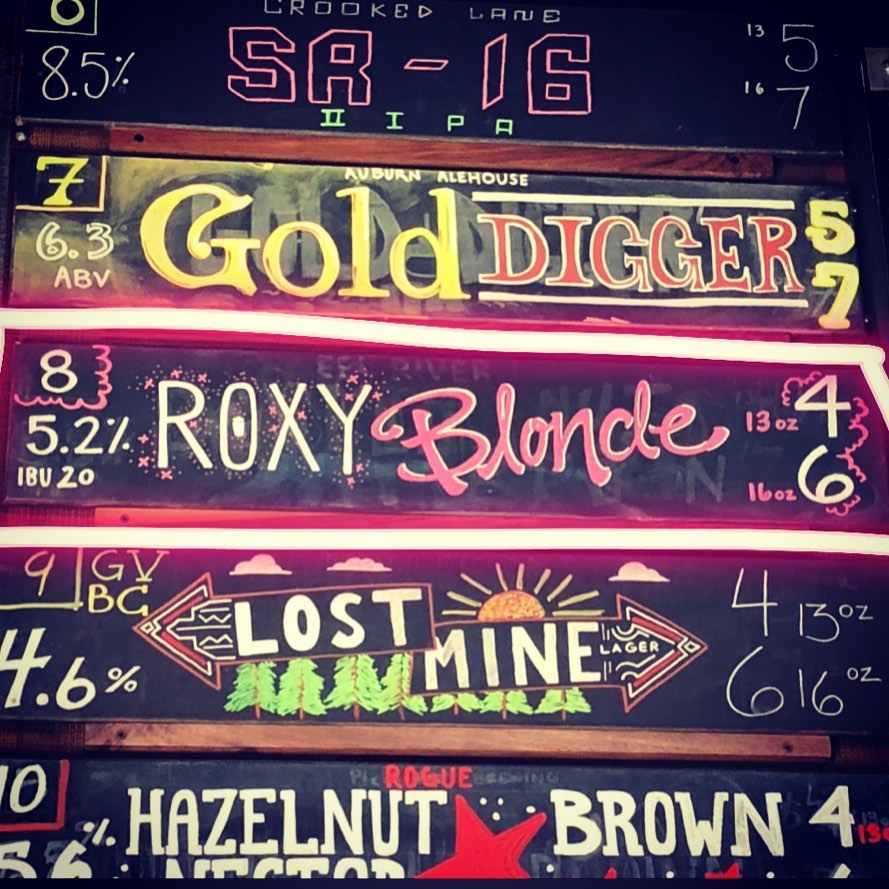 6
CROOKED LANE
8.5%
SR-16
II IPA
13 5
16 7
7
AUBURN ALEHOUSE
6.3
ABV
Gold DIGGER
5
7
8
5.2%
IBU 20
ROXY Blonde
13oz 4
16oz 6
9
GV
BC
4.6%
LOST
MINE
LAGER
4 13oz
6 16oz
10
ROGUE
HAZELNUT BROWN 4
NECTAR